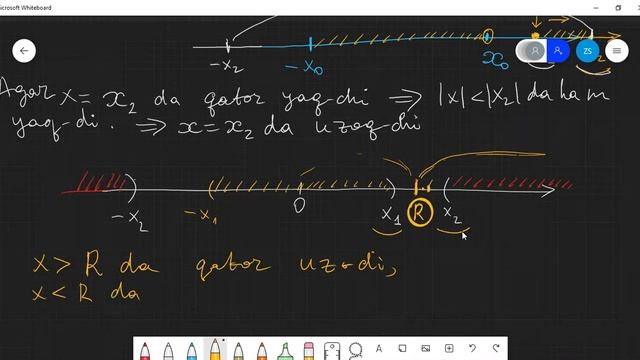 Microsoft Whiteboard
-x₂ -x₀ x₀
ZS
Agar x = x₂ da qator yaq-chi ⇒ |x|<|x₂| da ham
yaq-di. ⇒ x=x₂ da uzoq-chi
-x₂ -x₁ 0 x₁ R x₂
x > R da qator uzo-di,
x < R da
A